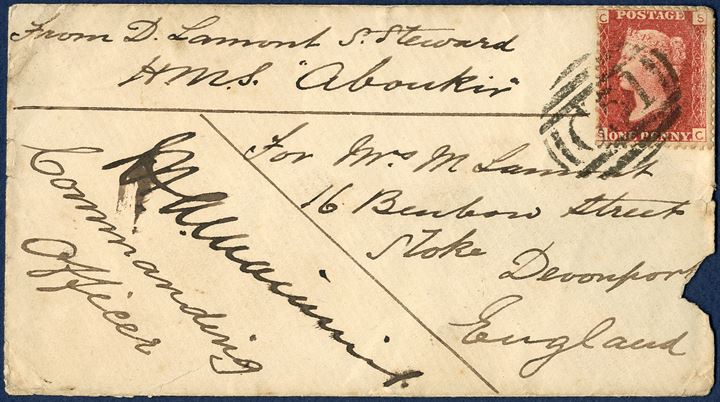 From D. Lamont S. Steward
H.M.S. "Aboukir"
C POSTAGE S
S ONE PENNY C
For Mrs M Lamont
16 Benbow Street
Stoke Devonport
England
Commanding
Officer